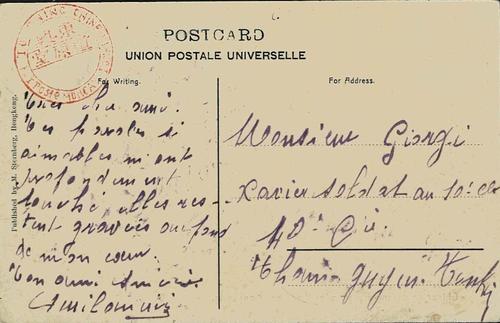 POSTCARD
UNION POSTALE UNIVERSELLE
For Writing.
For Address.
Published by M. Sternberg, Hongkong.
cher ami.
Tes paroles si
aimables m'ont
profondement
touché, elles res-
tent gravées au fond
de mon coeur.
Ton ami
Monsieur Giorgi
Xavier soldat au 10e
10e Cie
Thaïnguyen Tonkin